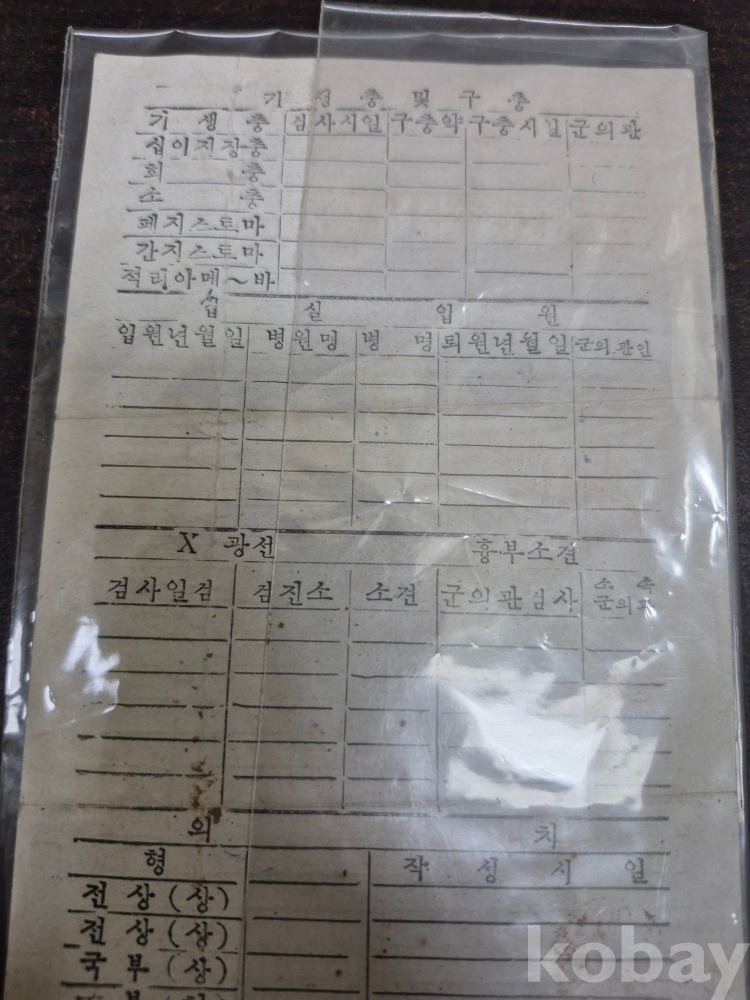 기 전 충 및 구 충
기 생 충 심사시일 구충약 구충시일 군의관
십이지장충
회 충
소 충
폐지스토마
간지스토마
적리아메~바
입 실 입 원
입원년월일 병원명 병 명 퇴원년월일 군의관인
X 광선 흉부소견
검사일검 검진소 소견 군의관심사 소속
군의관
의 치
형 작 성 시 일
전 상 (상)
전 상 (상)
국 부 (상)
kobay